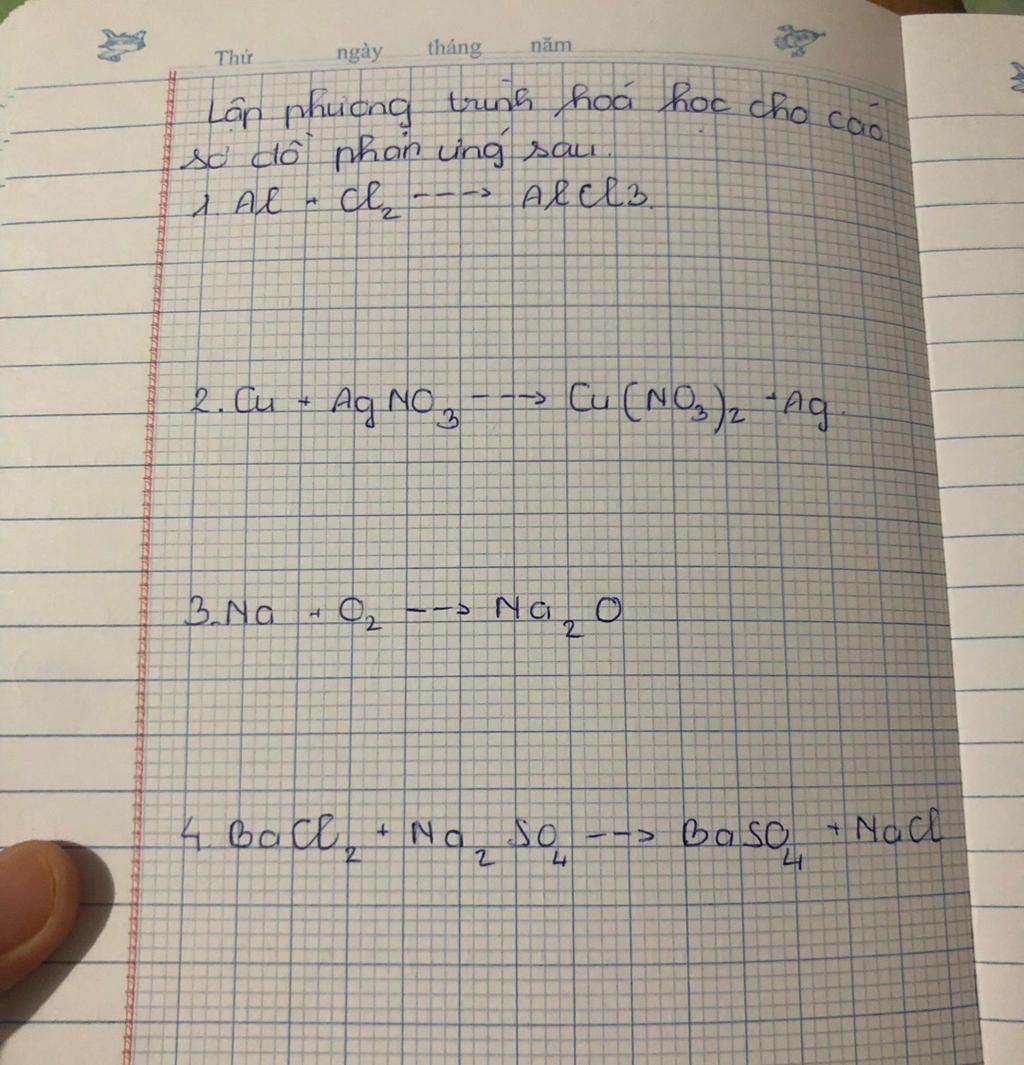 Thứ ngày tháng năm
Lập phương trình hoá học cho các
sơ đồ phản ứng sau.
1. Al + Cl₂ ---> AlCl3.
2. Cu + AgNO₃ ---> Cu(NO₃)₂ + Ag.
3. Na + O₂ ---> Na₂O
4. BaCl₂ + Na₂SO₄ ---> BaSO₄ + NaCl